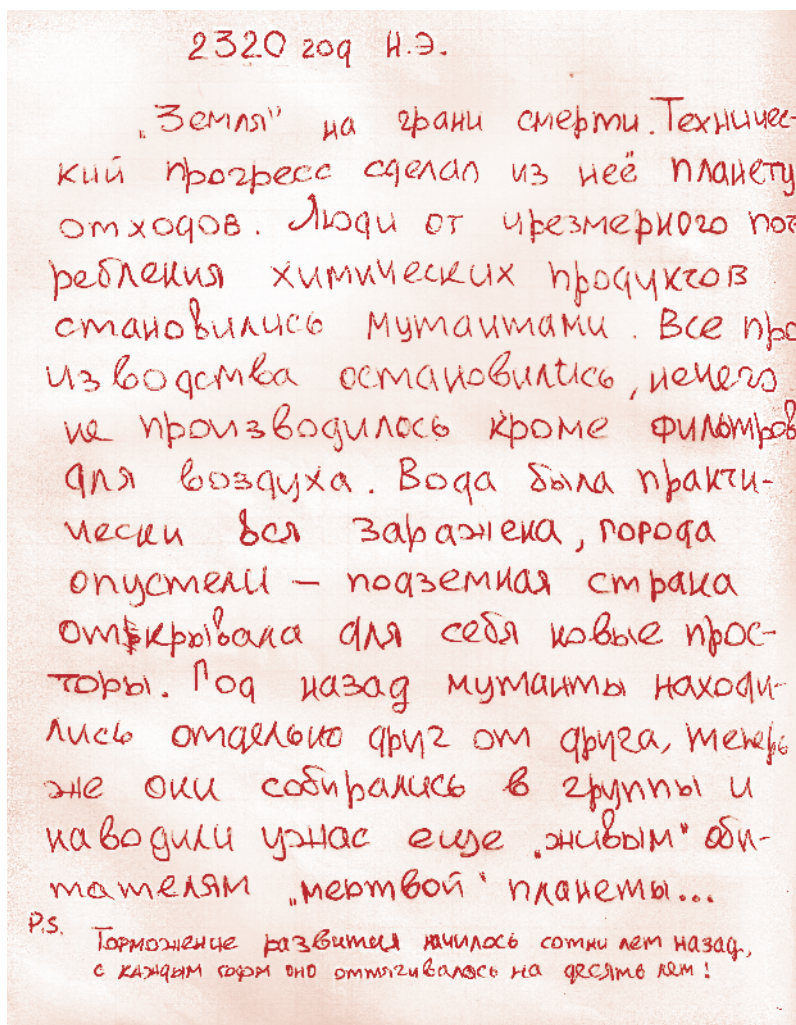 2320 год Н.Э.
„Земля" на грани смерти. Техничес-
кий прогресс сделал из неё планету
отходов. Люди от чрезмерного пот
ребления химических продуктов
становились мутантами. Все про
изводства остановились, нечего
не производилось кроме фильтров
для воздуха. Вода была практи-
чески вся заражена, города
опустели – подземная страна
открывала для себя новые прос-
торы. Год назад мутанты находи-
лись отдельно друг от друга, теперь
же они собирались в группы и
наводили ужас еще „живым" оби-
тателям „мертвой" планеты...
P.S. Торможение развития начилось сотни лет назад,
с каждым годом оно оттягивалось на десять лет!